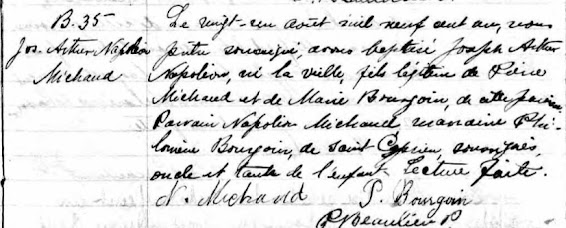 B. 35
Jos. Arthur Napoléon
Michaud
Le vingt-un août mil neuf cent un, nous
prêtre soussigné, avons baptisé Joseph Arthur
Napoléon, né la veille, fils légitime de Pierre
Michaud et de Marie Bourgoin, de cette paroisse
Parrain Napoléon Michaud marraine Phi-
lomène Bourgoin, de Saint Cyprien, soussignés,
oncle et tante de l'enfant. Lecture faite.
N. Michaud P. Bourgoin
Beaulieu P.